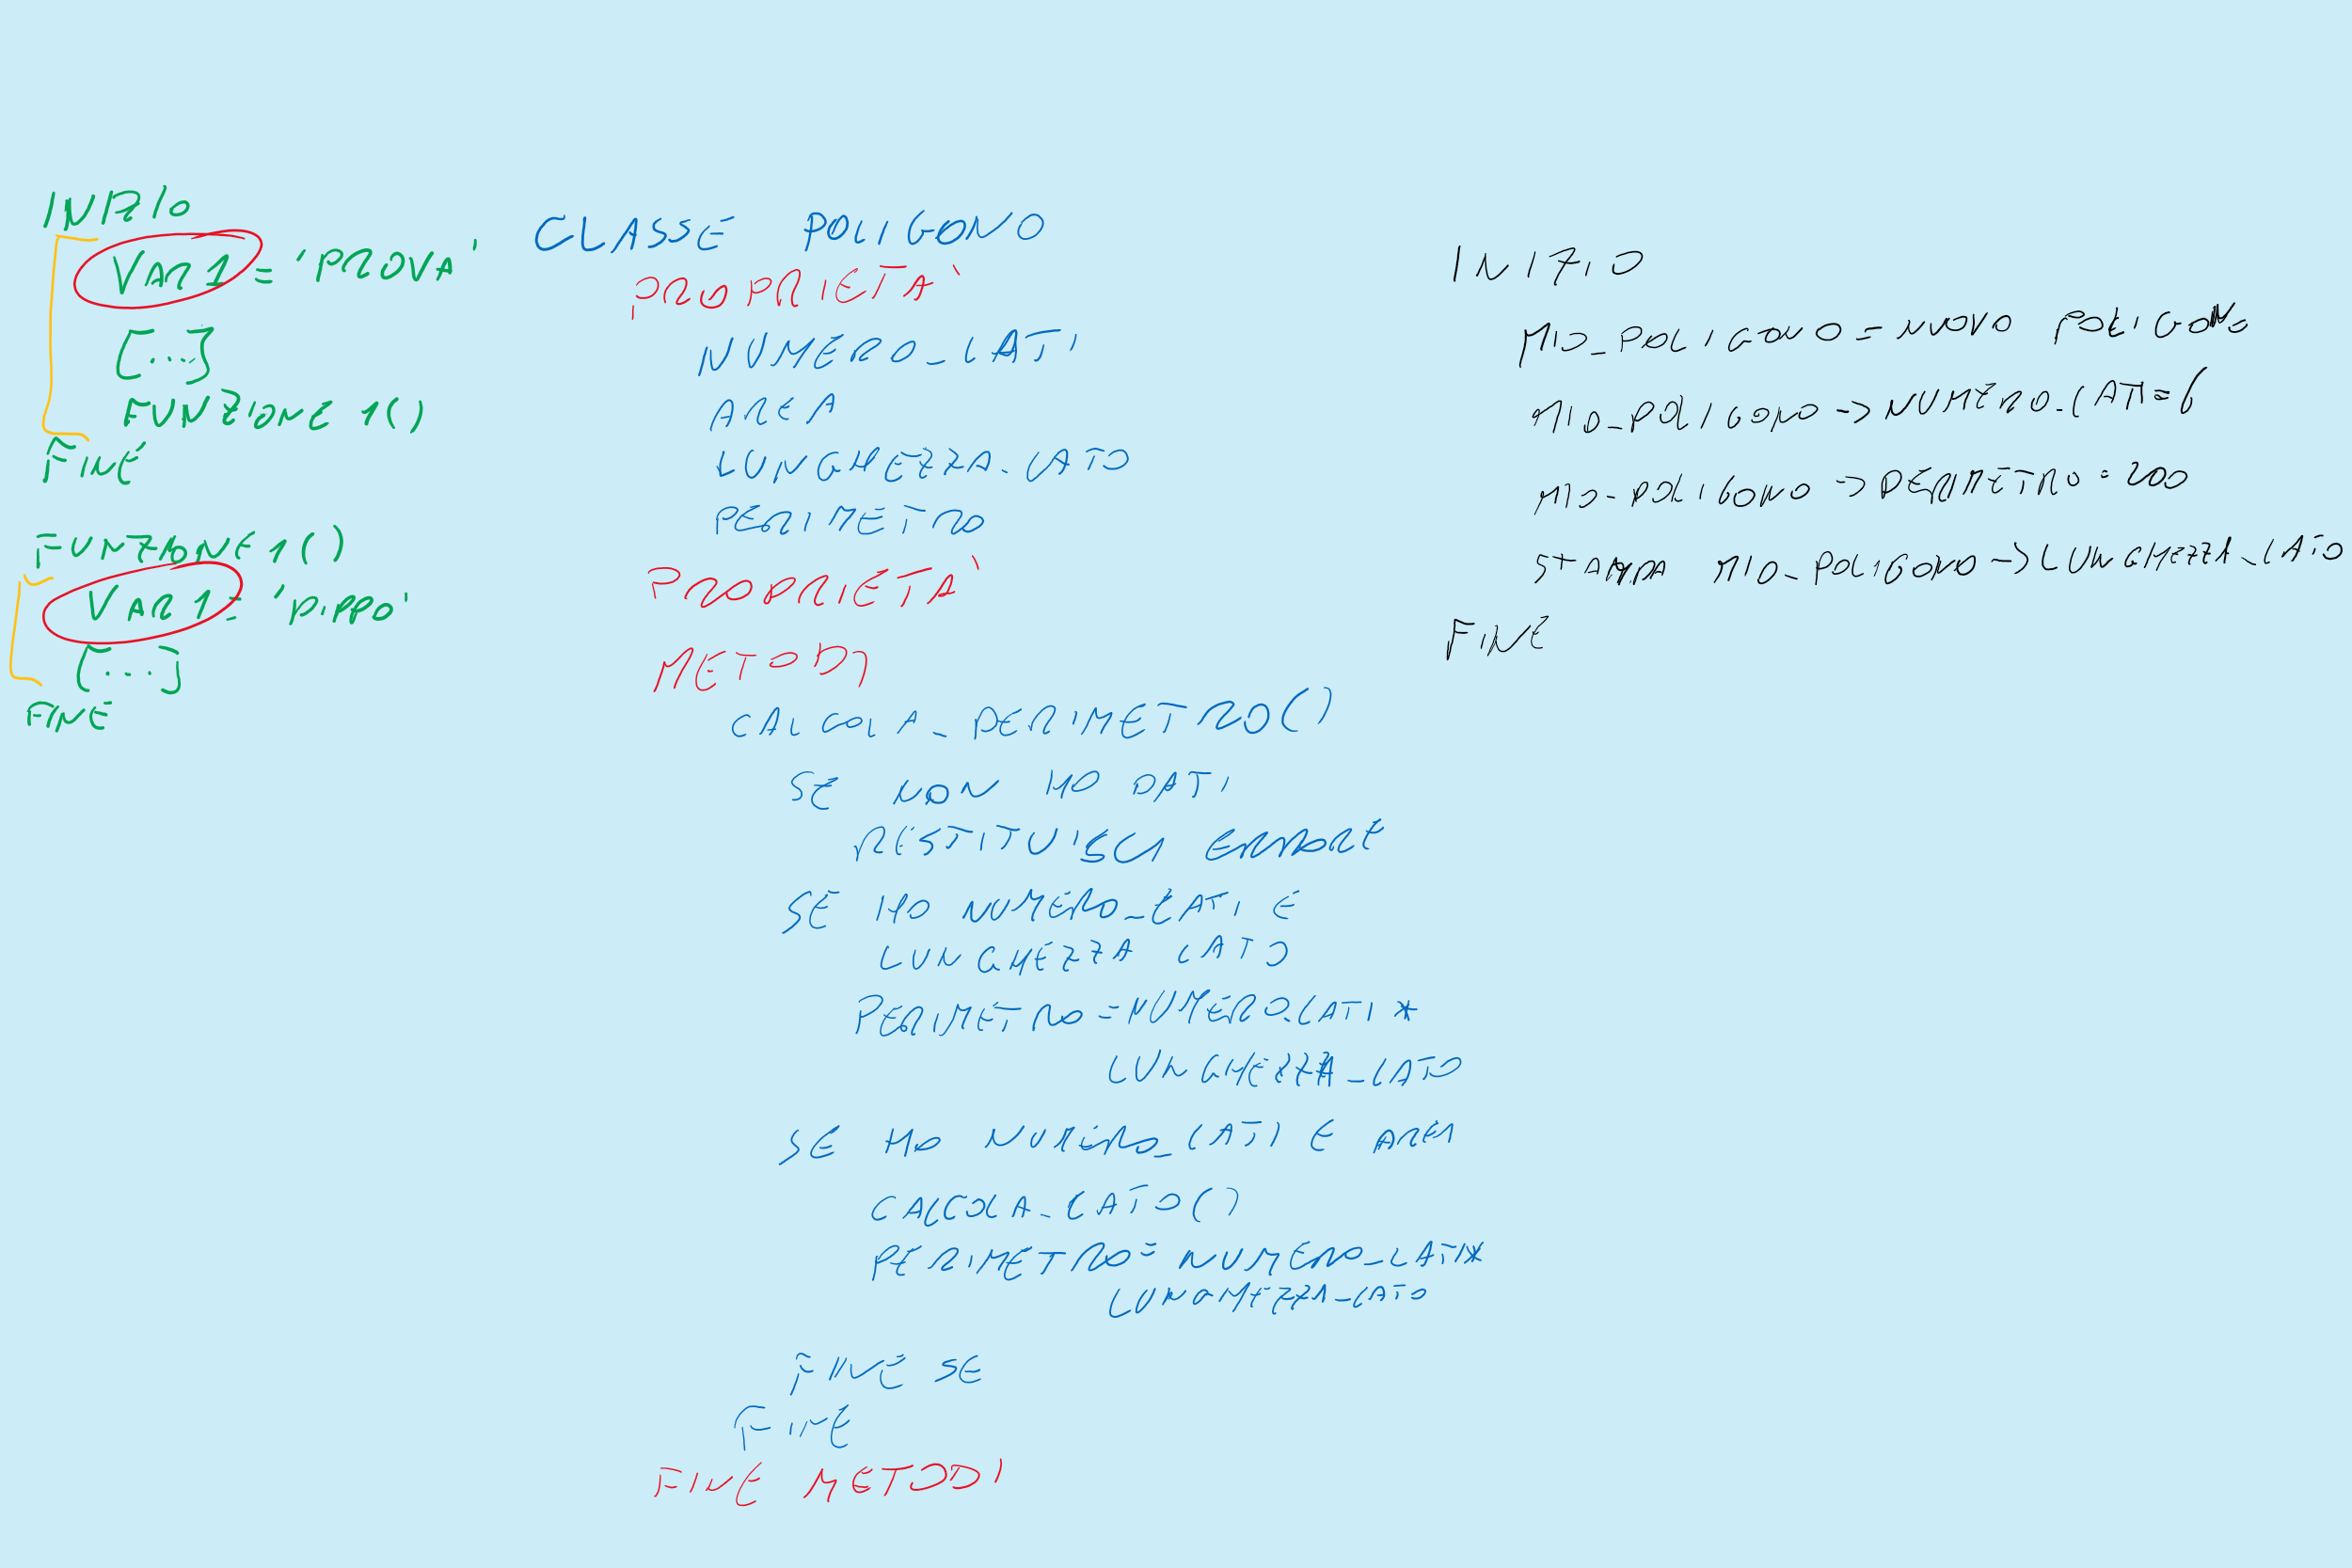 INIZIO
VAR1 = 'PROVA'
[...]
FUNZIONE1()
FINE
FUNZIONE1()
VAR1 = 'PIPPO'
[...]
FINE
CLASSE POLIGONO
PROPRIETA'
NUMERO_LATI
AREA
LUNGHEZZA_LATO
PERIMETRO
PROPRIETA'
METODI
CALCOLA_PERIMETRO()
SE NON HO DATI
RESTITUISCI ERRORE
SE HO NUMERO_LATI E
LUNGHEZZA LATO
PERIMETRO = NUMERO_LATI *
LUNGHEZZA_LATO
SE HO NUMERO_LATI E AREA
CALCOLA_LATO()
PERIMETRO = NUMERO_LATI *
LUNGHEZZA_LATO
FINE SE
FINE
FINE METODI
INIZIO
MIO_POLIGONO = NUOVO POLIGONO
MIO_POLIGONO -> NUMERO_LATI = 6
MIO_POLIGONO -> PERIMETRO = 200
STAMPA MIO_POLIGONO -> LUNGHEZZA_LATO
FINE